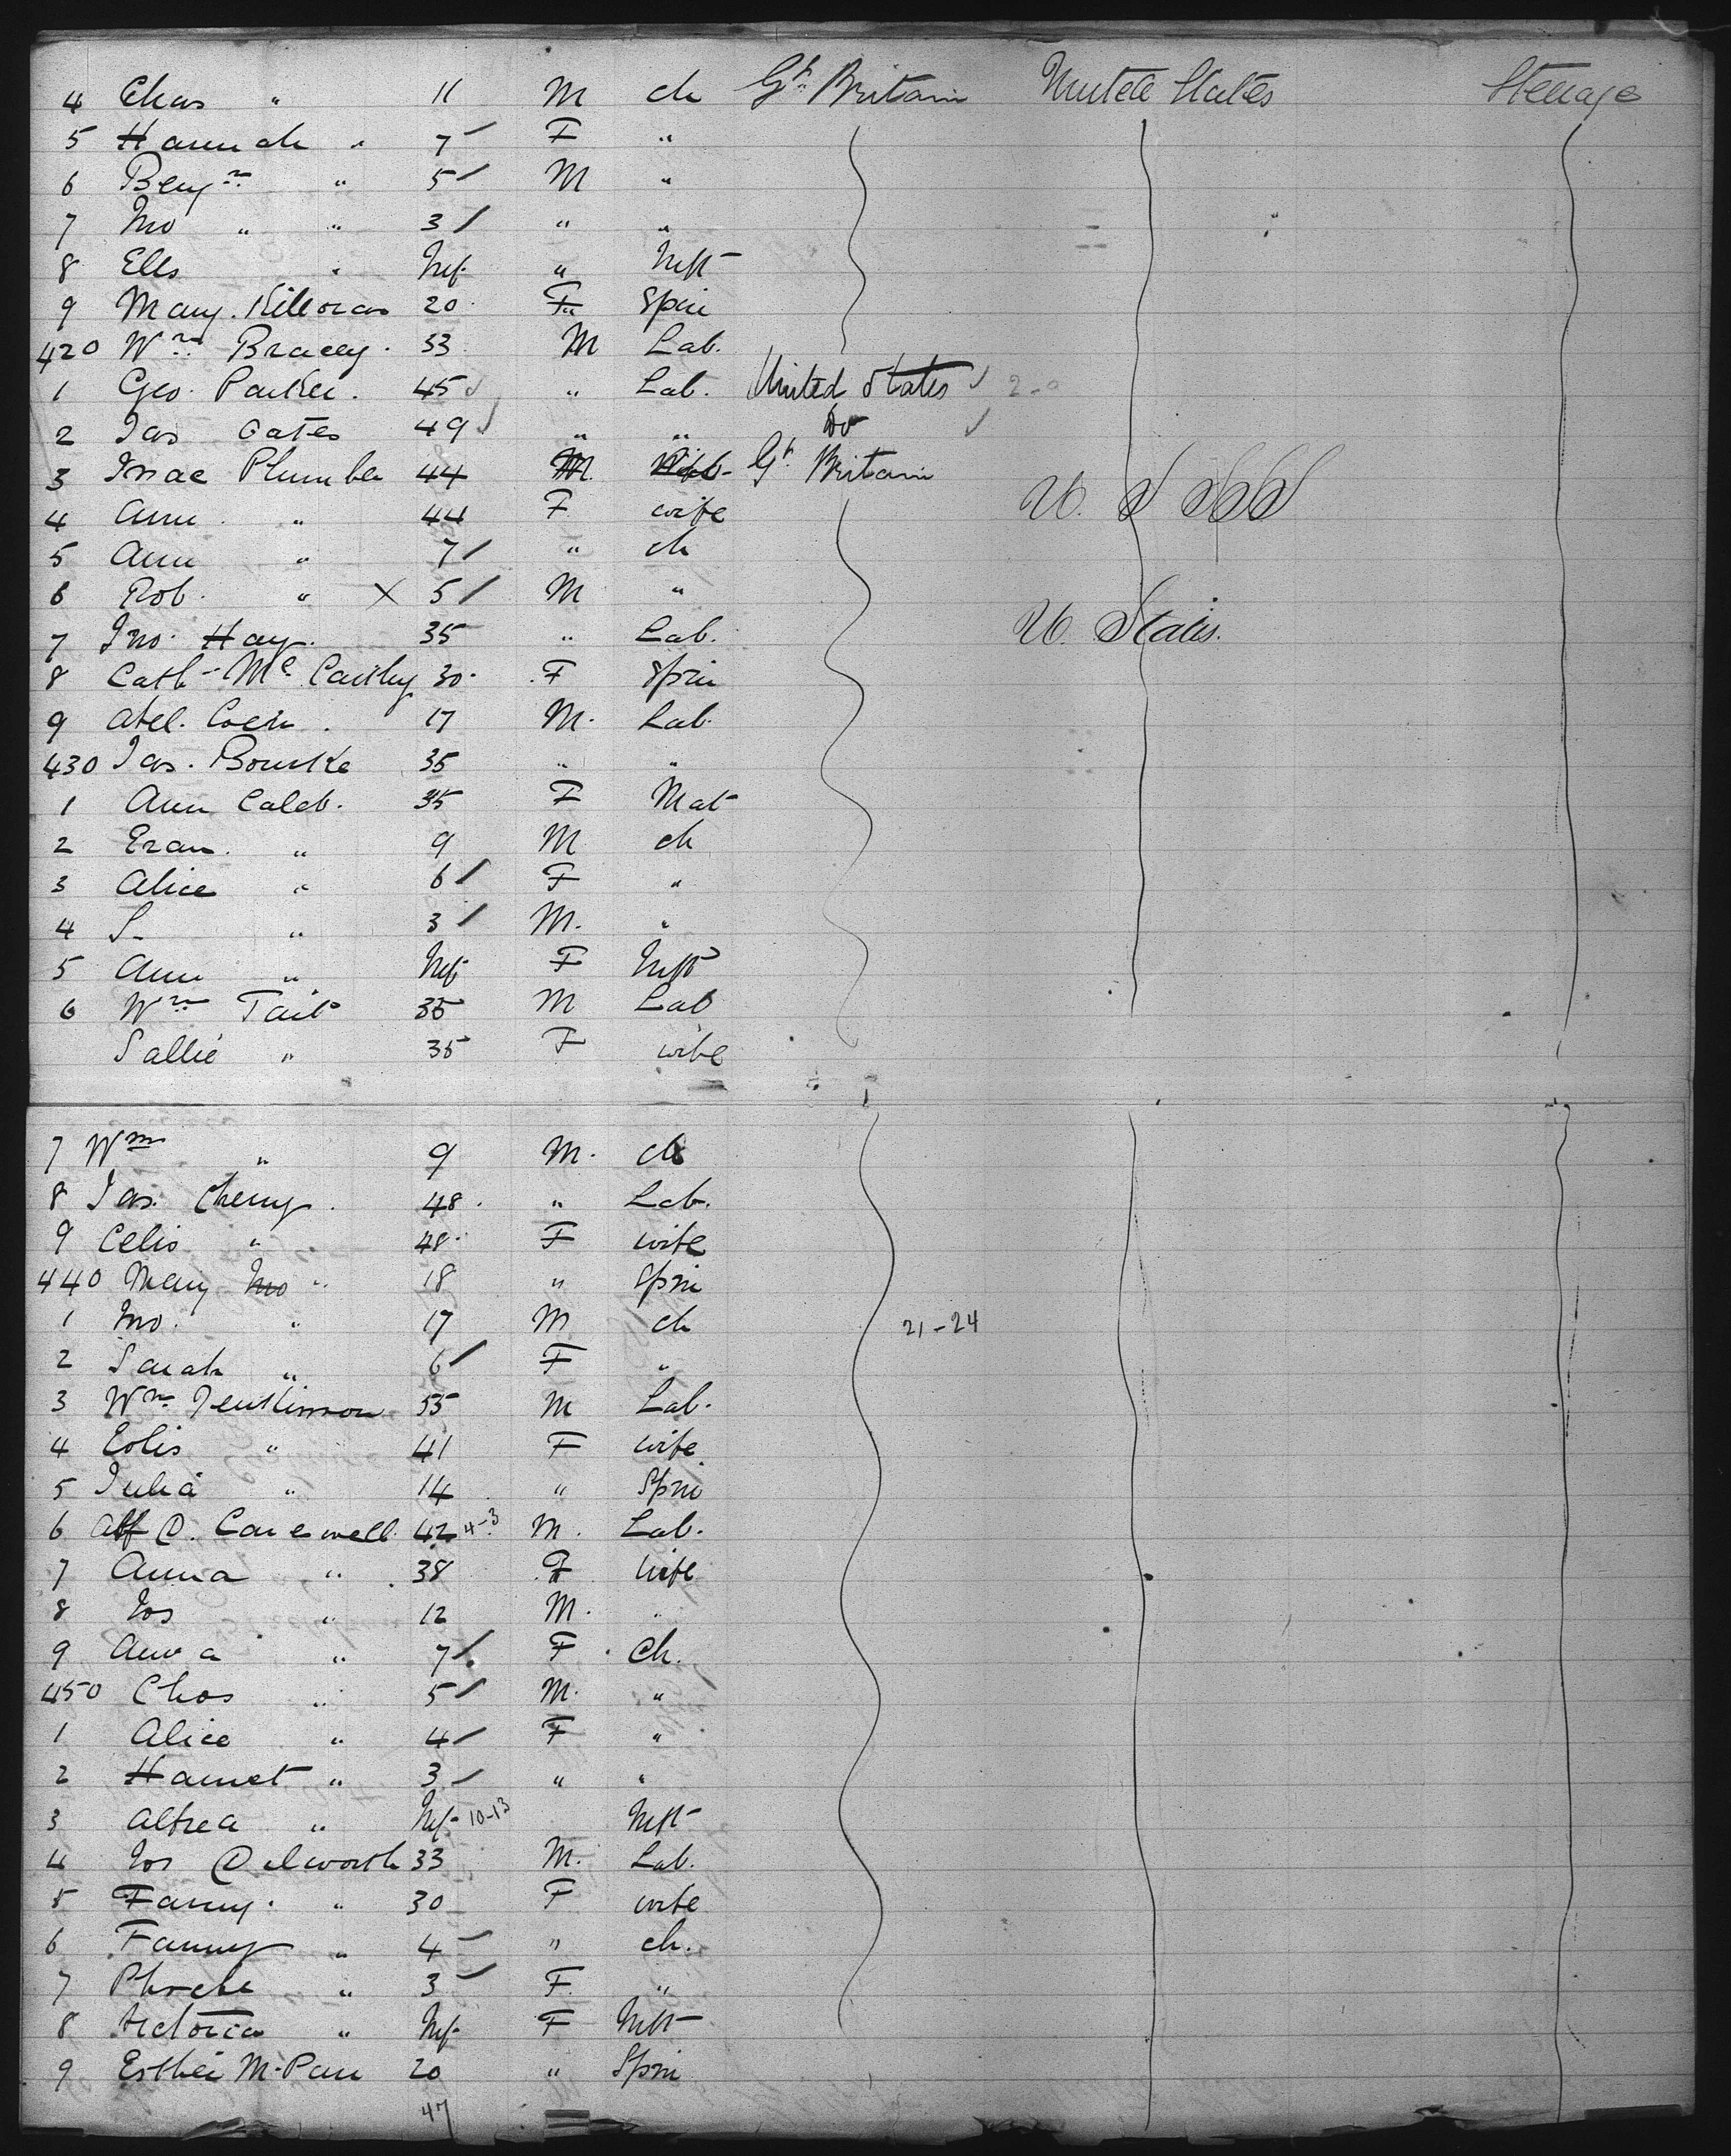 4 Chas " 11 M ch Gt Britain United States Steerage
5 Hannah " 7 F "
6 Benjn " 5 M "
7 Jno " " 3 " "
8 Elis " Inf " Inft
9 Mary Killoran 20 F Spin
420 Wm Bracey 33 M Lab.
1 Geo. Parker. 45 " Lab. United States
2 Jas Oates 49 " " Do
3 Isaac Plumber 44 M. Gt. Britain
4 Ann " 44 F wife U. S
5 Ann " 7 " ch
6 Rob. " X 5 M "
7 Jno. Hay. 35 " Lab. U. States.
8 Cath Mc Carthy 30. F Spin
9 Abel. 17 M. Lab.
430 Jas. Bourke 35 " "
1 Ann Caleb. 35 F Mat
2 Eran " 9 M ch
3 Alice " 6 F "
4 S- " 3 M. "
5 Ann " Inf F Inft
6 Wm Tait 35 M Lab
Sallie " 35 F wife
7 Wm " 9 M. ch
8 Jas. Cherry. 48. " Lab.
9 Celis " 48. F wife
440 Mary Jno " 18 " Spin
1 Jno. " 17 M ch 21-24
2 Sarah " 6 F "
3 Wm Jenkinson 55 M Lab.
4 Eolis " 41 F wife
5 Julia " 14 " Spin
6 Alf C. Carewell 42 4-3 M. Lab.
7 Anna " 38 F wife
8 Jos " 12 M. "
9 Anna " 7 F Ch.
450 Chas " 5 M. "
1 Alice " 4 F "
2 Harriet " 3 " "
3 Alfred " Inf 10-13 Inft
4 Jos Dilworth 33 M. Lab.
5 Fanny. " 30 F wife
6 Fanny " 4 " ch.
7 Phoebe " 3 F. "
8 Victoria " Inf F Inft
9 Esther M. Parr 20 " Spin
47